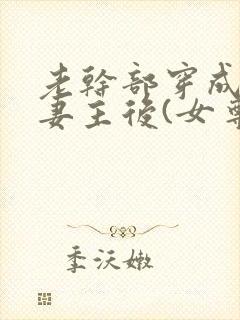 老幹部穿成
妻主後(女尊
季沃嫩